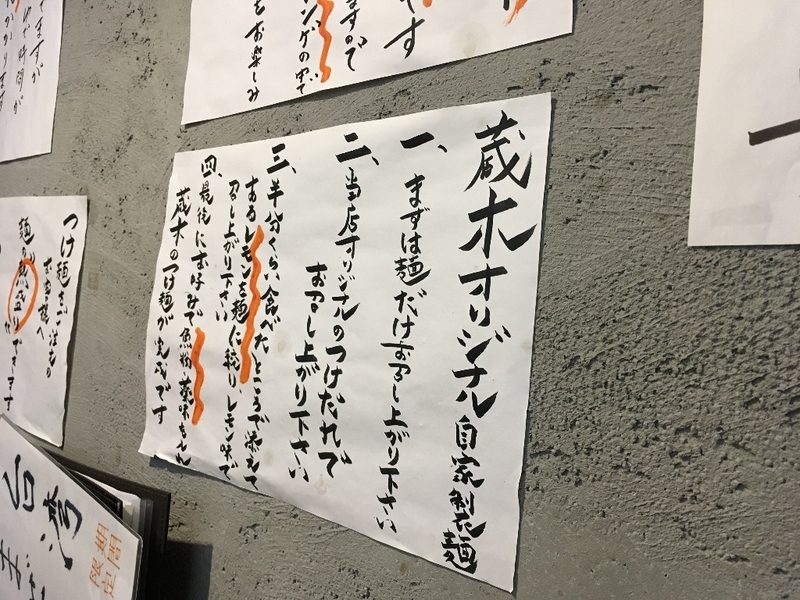 蔵木オリジナル自家製麺
一、まずは麺だけお召し上がり下さい
二、当店オリジナルのつけだれで
お召し上がり下さい
三、半分くらい食べたところで添えて
あるレモンを麺に絞り、レモン味で
召し上がり下さい
四、最後にお好みで魚粉、薬味を入れ
蔵木のつけ麺が完成です
やす
ますので
をお楽しみ
てますが
ゆで時間が
かかります
つけ麺をご注文の
お客様へ
麺の熱盛りできます
台湾
まぜ
期間
限定